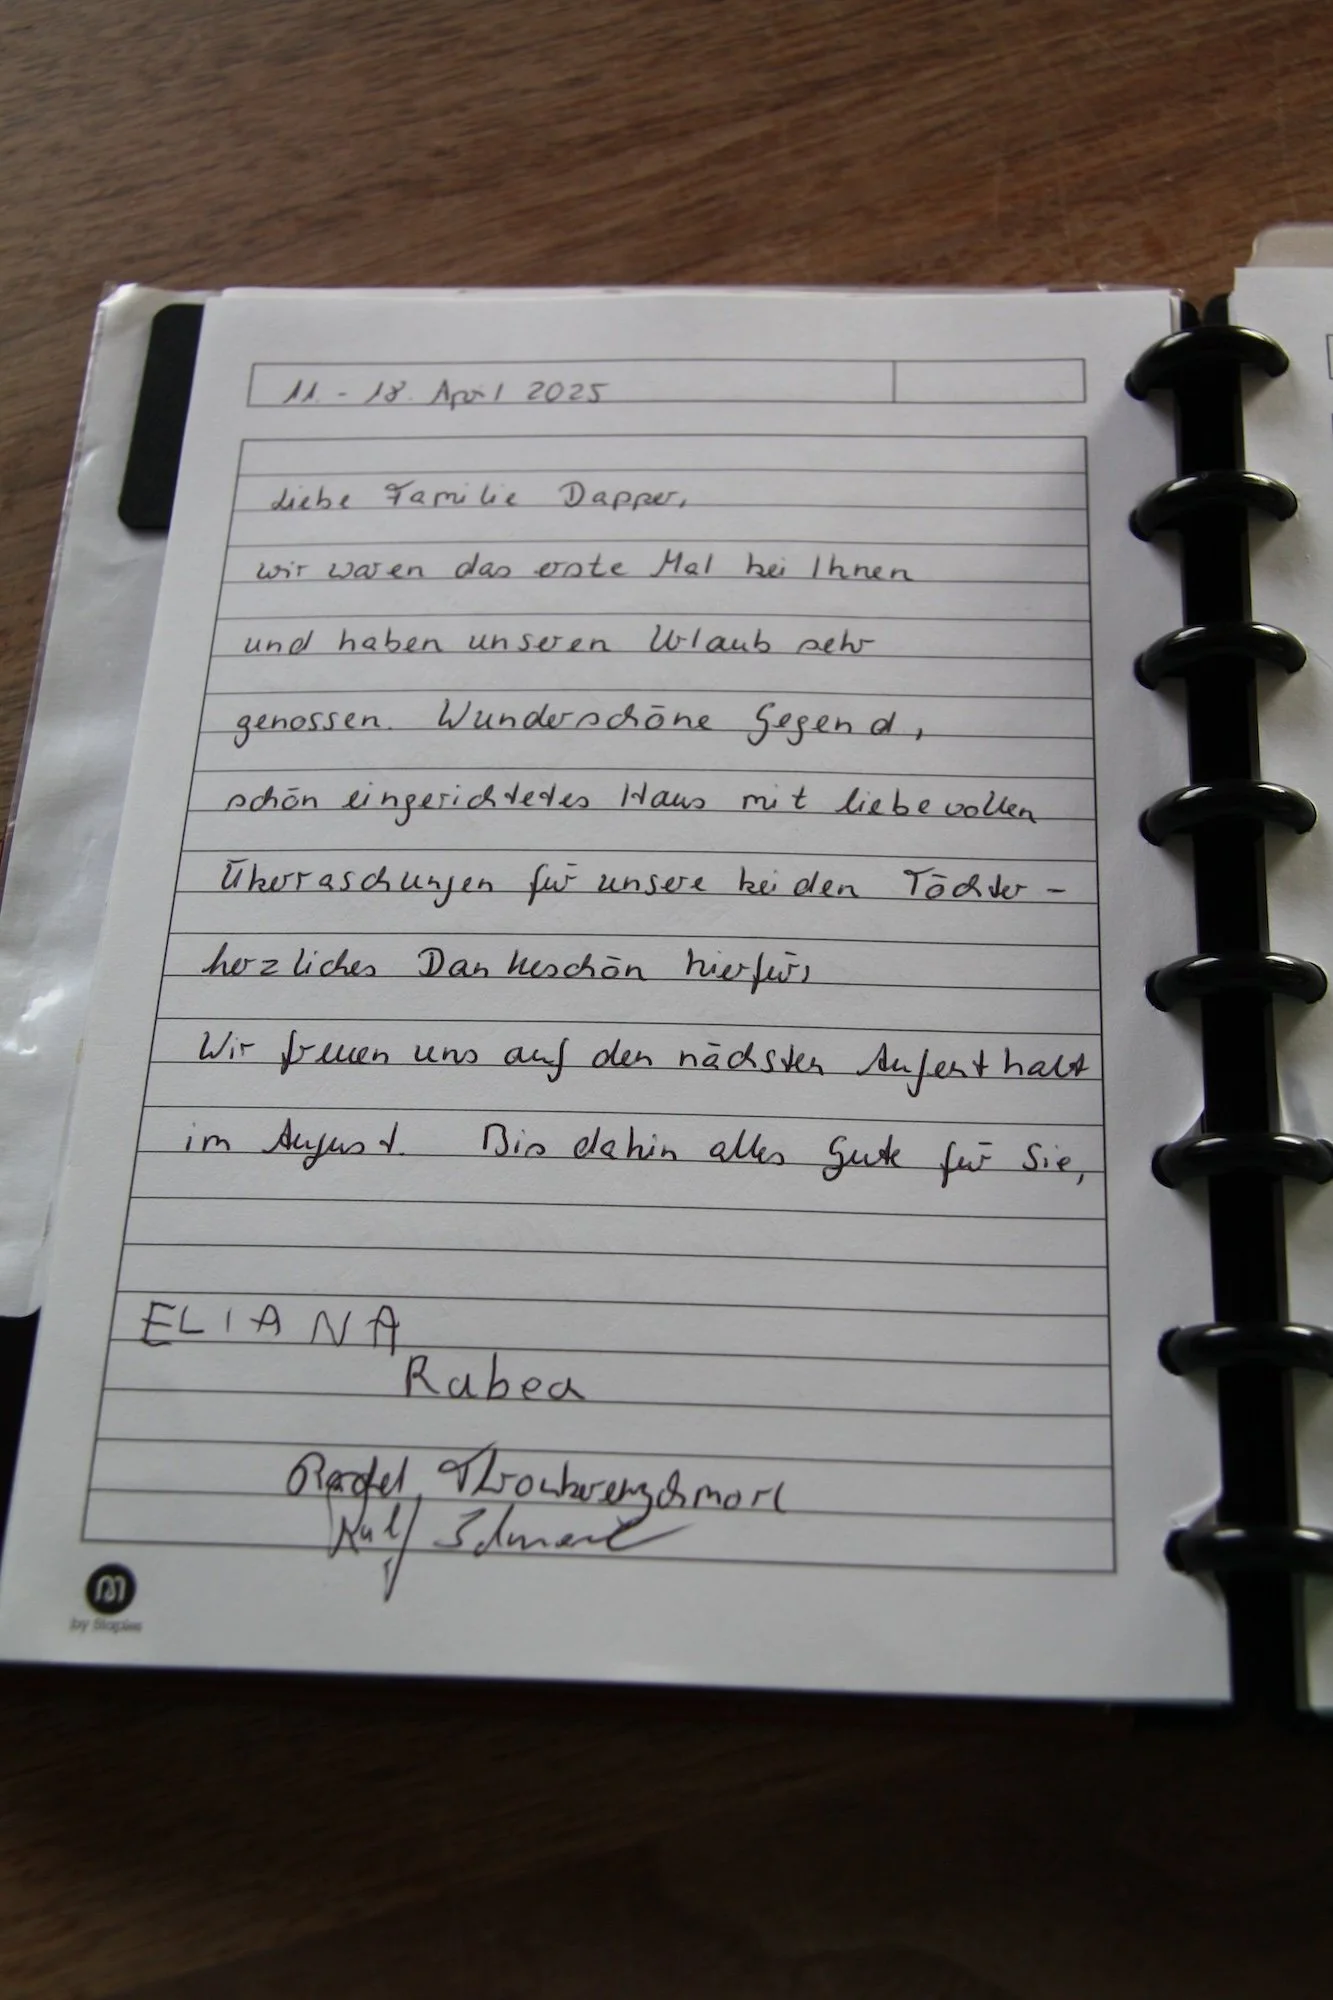 11. - 18. April 2025
Liebe Familie Dapper,
wir waren das erste Mal bei Ihnen
und haben unseren Urlaub sehr
genossen. Wunderschöne Gegend,
schön eingerichtetes Haus mit liebevollen
Überraschungen für unsere beiden Töchter -
herzliches Dankeschön hierfür,
Wir freuen uns auf den nächsten Aufenthalt
im August. Bis dahin alles Gute für Sie,
ELIANA
Rabea
Ralf
by Staples